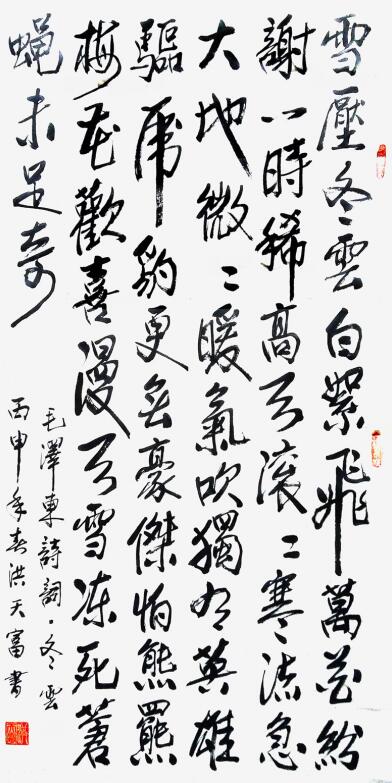 雪壓冬雲白絮飛萬花紛
謝一時稀高天滾〻寒流急
大地微〻暖氣吹獨有英雄
驅虎豹更無豪傑怕熊羆
梅花歡喜漫天雪凍死蒼
蠅未足奇
毛澤東詩詞·冬雲
丙申年春洪天富書